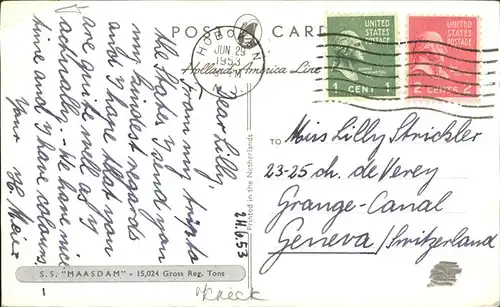 POST CARD
HOBOKEN
JUN 29
1953
Holland-America Line
UNITED STATES POSTAGE
1 CENT 1
UNITED STATES POSTAGE
2 CENTS 2
Dear Lilly,
From my trip to
the States I send you
my kindest regards
and I hope that you
are quite well as I
actually. We have nice
time and I have colours,
Your
24.6.53
Printed in the Netherlands
TO
Miss Lilly Strickler
23-25 ch. de Verey
Grange-Canal
Geneva/Switzerland
S.S. "MAASDAM" - 15,024 Gross Reg. Tons